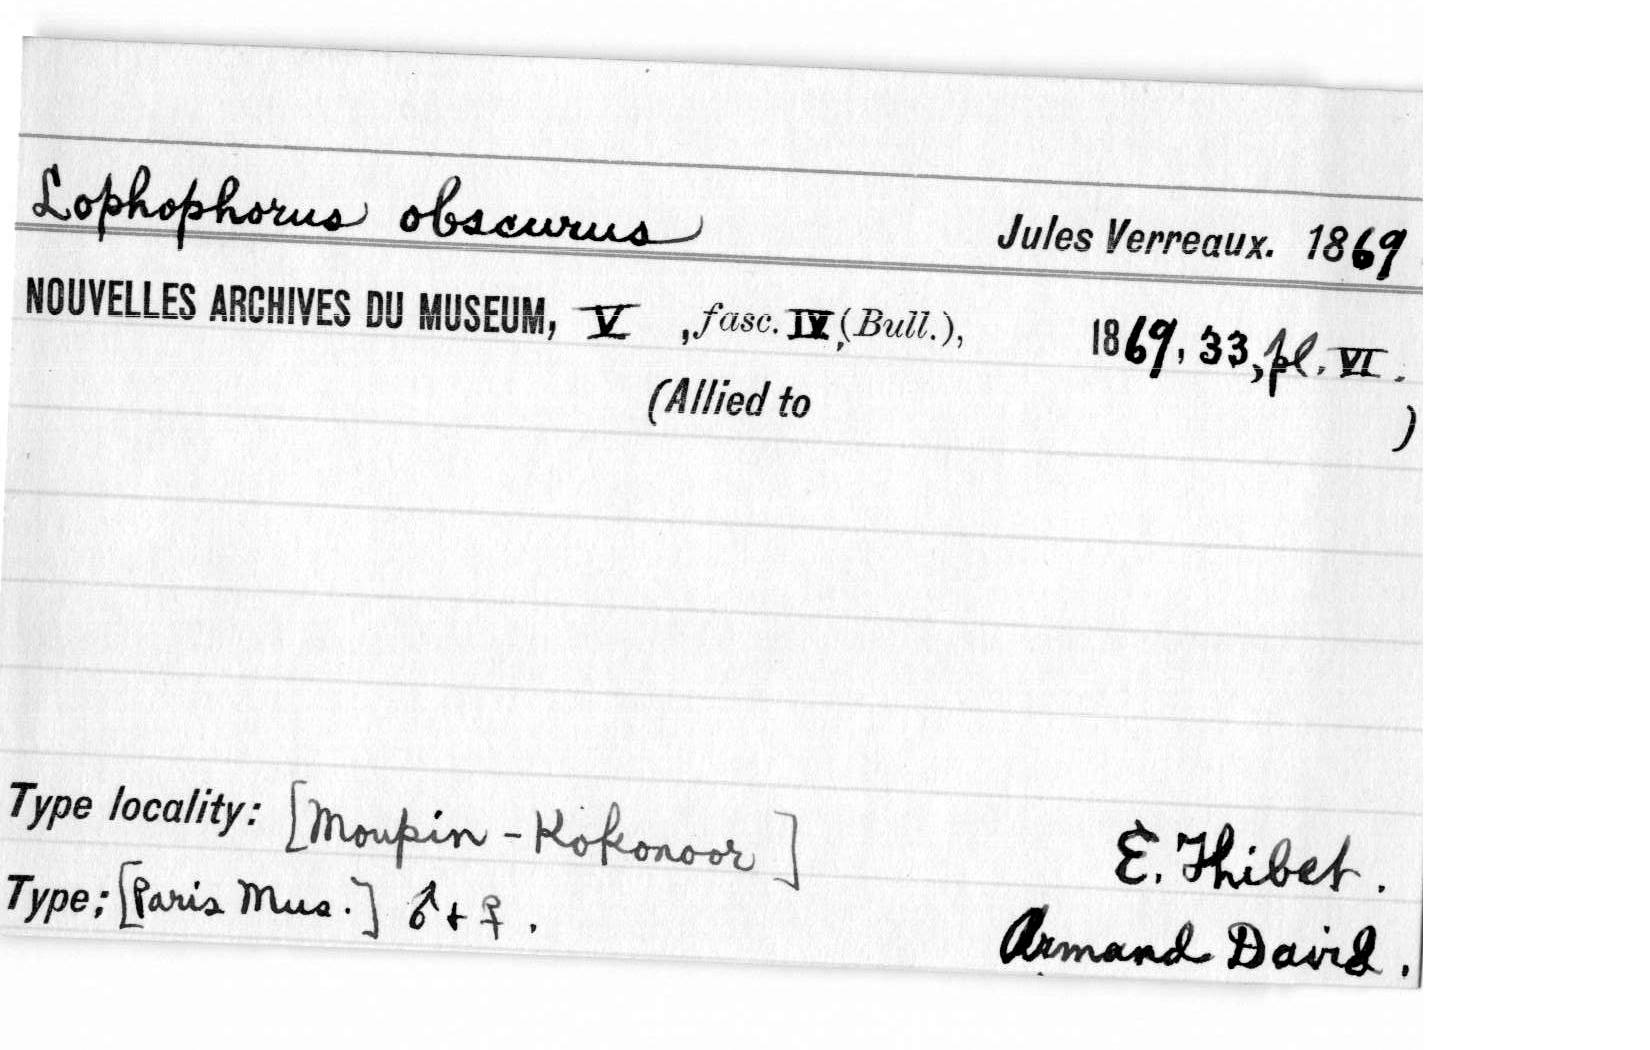 Lophophorus obscurus Jules Verreaux. 1869
NOUVELLES ARCHIVES DU MUSEUM, V , fasc. IV, (Bull.), 1869, 33, pl. VI.
(Allied to )
Type locality: [Moupin - Kokonoor] E. Thibet.
Type; [Paris Mus.] ♂ + ♀. Armand David.